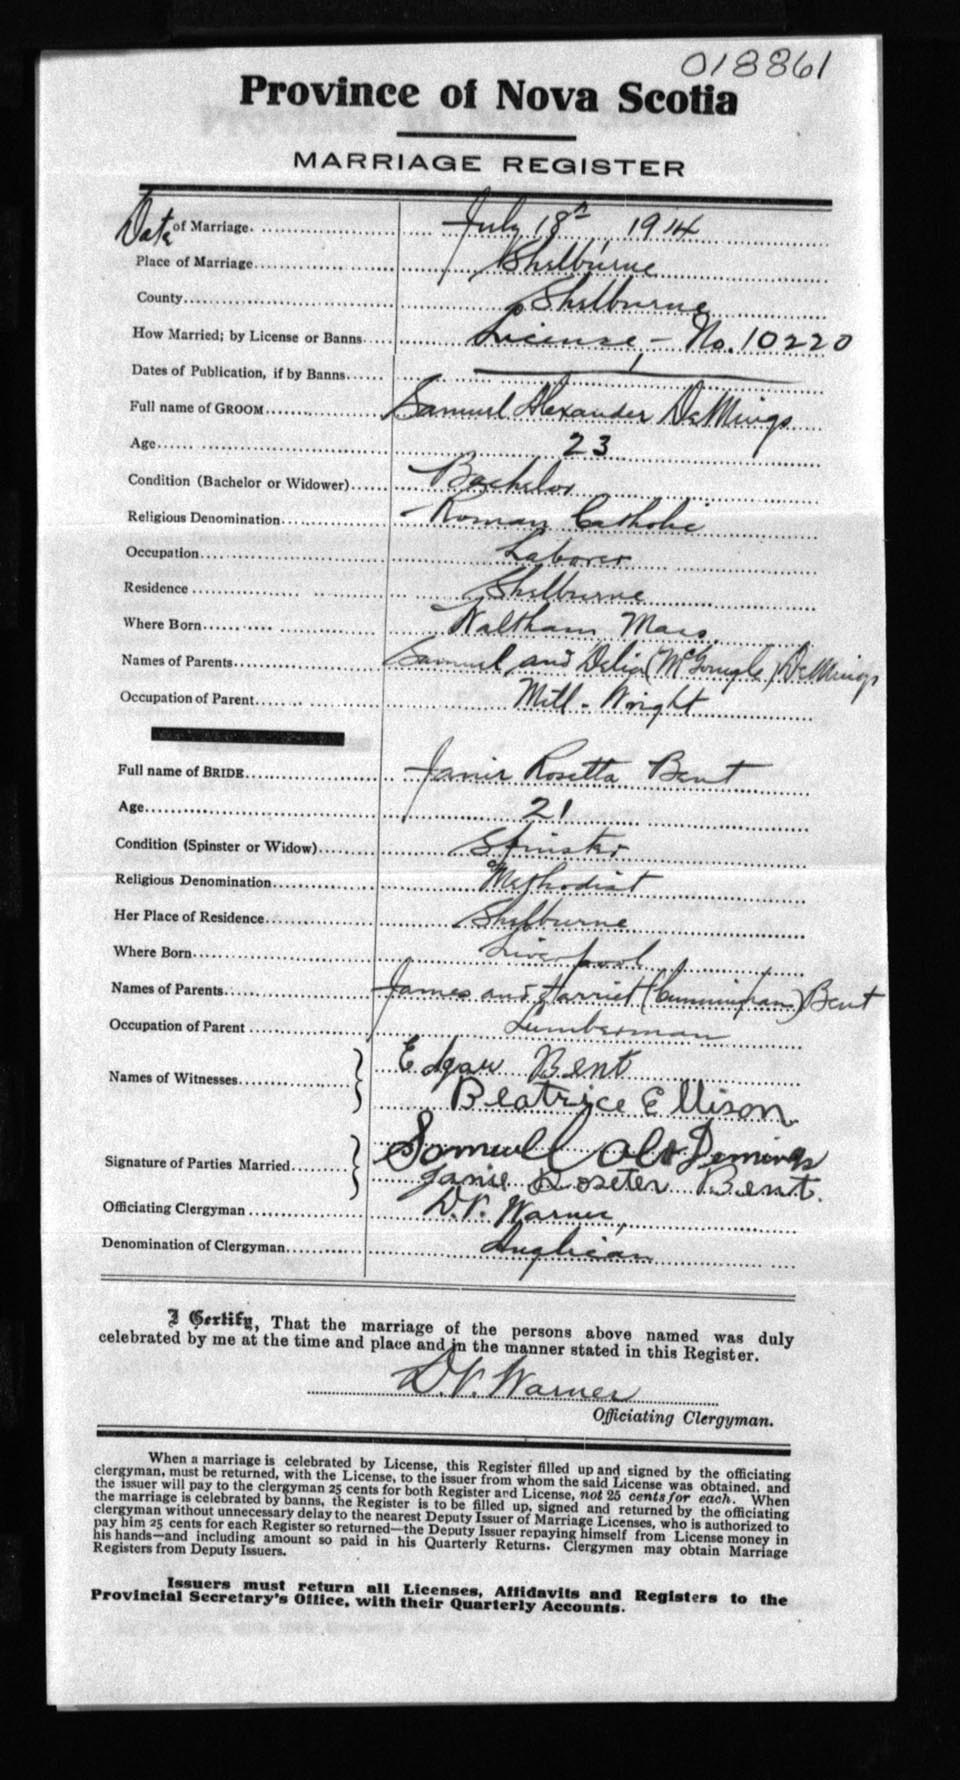 018861
Province of Nova Scotia
MARRIAGE REGISTER
Date of Marriage. July 18th 1914
Place of Marriage Shelburne
County Shelburne
How Married; by License or Banns License - No. 10220
Dates of Publication, if by Banns
Full name of GROOM Samuel Alexander DeMings
Age 23
Condition (Bachelor or Widower) Bachelor
Religious Denomination Roman Catholic
Occupation Laborer
Residence Shelburne
Where Born Waltham Mass.
Names of Parents Samuel and Delia (McGonigle) DeMings
Occupation of Parent Mill-Wright
Full name of BRIDE Janie Rosetta Bent
Age 21
Condition (Spinster or Widow) Spinster
Religious Denomination Methodist
Her Place of Residence Shelburne
Where Born Liverpool
Names of Parents James and Harriet (Cunningham) Bent
Occupation of Parent Lumberman
Names of Witnesses Edgar Bent
Beatrice Ellison
Signature of Parties Married Samuell Demings
Janie Roseter Bent.
Officiating Clergyman D.V. Warner,
Denomination of Clergyman Anglican
I Certify, That the marriage of the persons above named was duly
celebrated by me at the time and place and in the manner stated in this Register.
D.V. Warner
Officiating Clergyman.
When a marriage is celebrated by License, this Register filled up and signed by the officiating
clergyman, must be returned, with the License, to the issuer from whom the said License was obtained, and
the issuer will pay to the clergyman 25 cents for both Register and License, not 25 cents for each. When
the marriage is celebrated by banns, the Register is to be filled up, signed and returned by the officiating
clergyman without unnecessary delay to the nearest Deputy Issuer of Marriage Licenses, who is authorized to
pay him 25 cents for each Register so returned—the Deputy Issuer repaying himself from License money in
his hands—and including amount so paid in his Quarterly Returns. Clergymen may obtain Marriage
Registers from Deputy Issuers.
Issuers must return all Licenses, Affidavits and Registers to the
Provincial Secretary's Office, with their Quarterly Accounts.